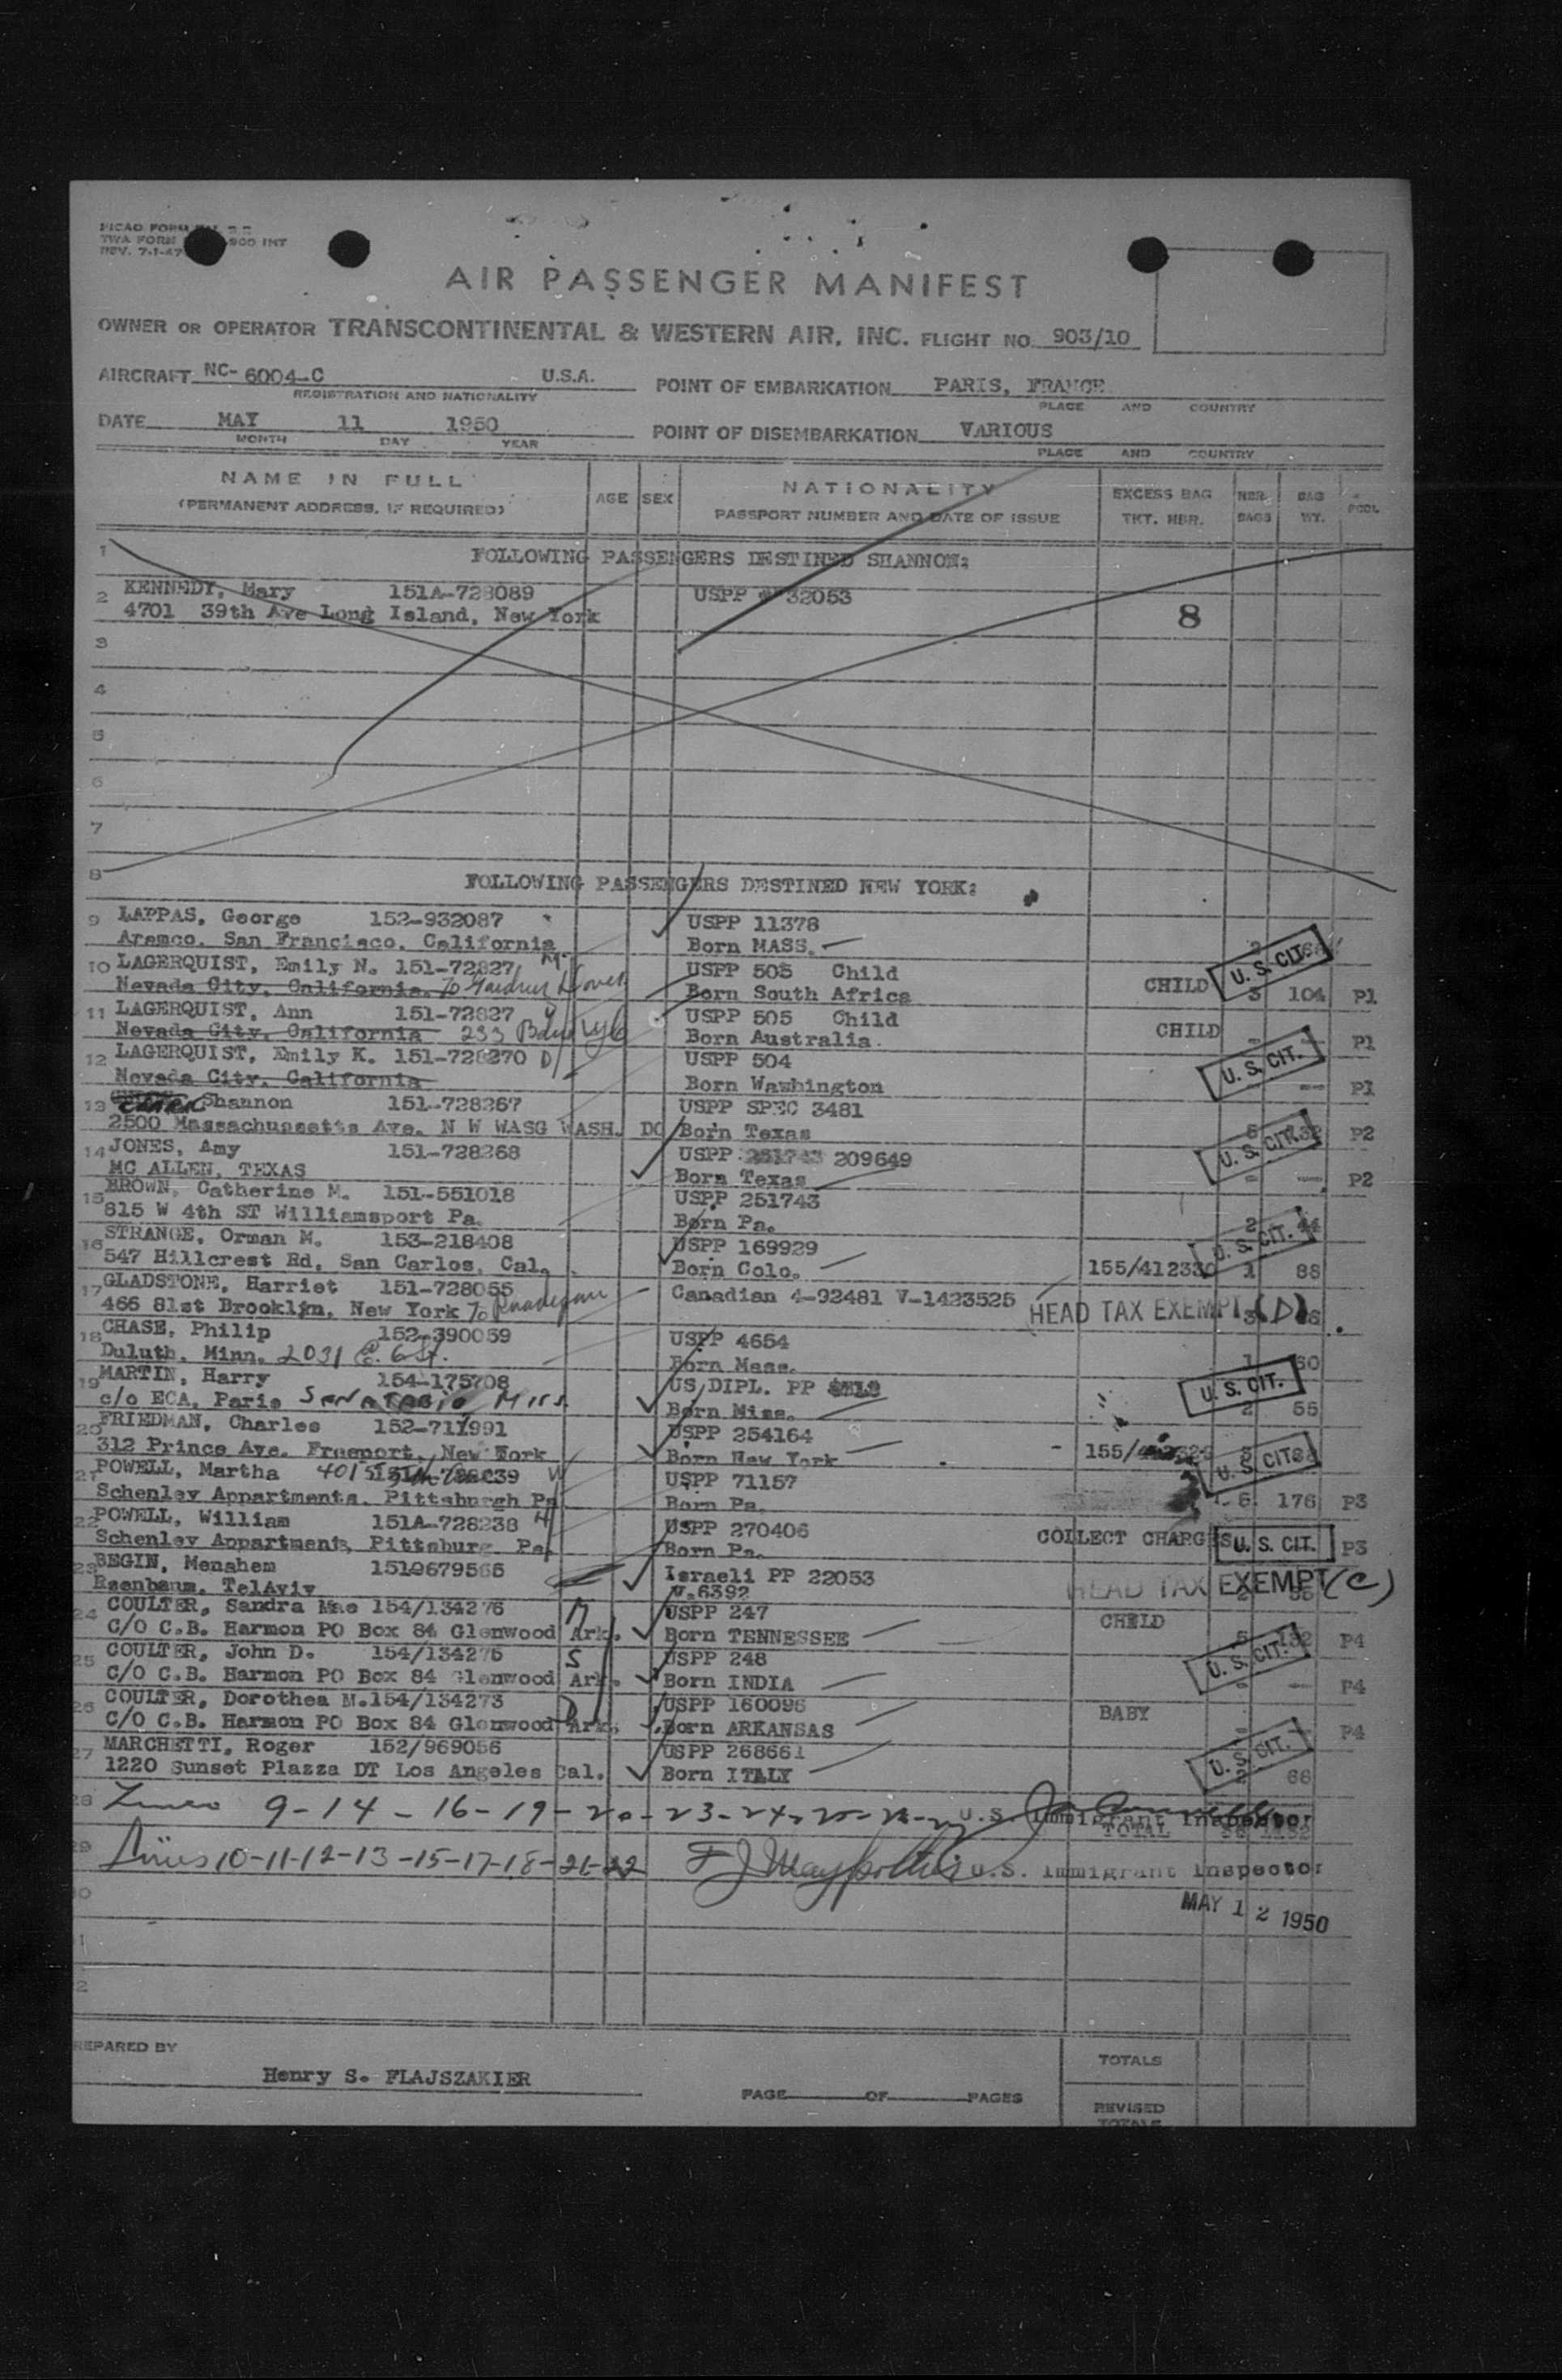 TWA FORM 900 INT
REV. 7-1-47
AIR PASSENGER MANIFEST
OWNER OR OPERATOR TRANSCONTINENTAL & WESTERN AIR, INC. FLIGHT NO. 903/10
AIRCRAFT NC- 6004-C U.S.A. POINT OF EMBARKATION PARIS, FRANCE
REGISTRATION AND NATIONALITY PLACE AND COUNTRY
DATE MAY 11 1950 POINT OF DISEMBARKATION VARIOUS
MONTH DAY YEAR PLACE AND COUNTRY
NAME IN FULL AGE SEX NATIONALITY EXCESS BAG NBR. BAG POOL
(PERMANENT ADDRESS, IF REQUIRED) PASSPORT NUMBER AND DATE OF ISSUE TKT. NBR. BAGS WT.
1 FOLLOWING PASSENGERS DESTINED SHANNON:
2 KENNEDY, Mary 151A-728089 USPP 32053
4701 39th Ave Long Island, New York 8
3
4
5
6
7
8 FOLLOWING PASSENGERS DESTINED NEW YORK:
9 LAPPAS, George 152-932087 USPP 11378
Aramco, San Francisco, California Born MASS. U.S. CIT.
10 LAGERQUIST, Emily N. 151-72827 USPP 505 Child CHILD
Nevada City, California. Born South Africa 3 104 P1
11 LAGERQUIST, Ann 151-72827 USPP 505 Child CHILD
Nevada City, California 233 Born Australia. - - P1
12 LAGERQUIST, Emily K. 151-728270 D USPP 504 U.S. CIT.
Nevada City, California Born Washington - -- P1
13 Shannon 151-728267 USPP SPEC 3481
2500 Massachussetts Ave. N W WASG WASH. DC Born Texas 5 132 P2
14 JONES, Amy 151-728268 USPP 251743 209649 U.S. CIT.
MC ALLEN, TEXAS Born Texas - -- P2
15 BROWN, Catherine M. 151-551018 USPP 251743
815 W 4th ST Williamsport Pa. Born Pa. 2 44
16 STRANGE, Orman M. 153-218408 USPP 169929 U.S. CIT.
547 Hillcrest Rd, San Carlos, Cal. Born Colo. 155/412330 1 88
17 GLADSTONE, Harriet 151-728055 Canadian 4-92481 V-1423525
466 81st Brooklyn, New York HEAD TAX EXEMPT (D)
18 CHASE, Philip 152-390059 USPP 4654
Duluth, Minn. 2031 E. 6 St. Born Mass. 1 60
19 MARTIN, Harry 154-175708 US DIPL. PP U.S. CIT.
c/o ECA, Paris Senatobia Miss. Born Miss. 2 55
20 FRIEDMAN, Charles 152-711991 USPP 254164
312 Prince Ave. Freeport, New York Born New York 155/ U.S. CIT.
21 POWELL, Martha USPP 71157
Schenley Appartments, Pittsburgh Pa Born Pa. 5 176 P3
22 POWELL, William 151A-728238 H USPP 270406 COLLECT CHARGES U.S. CIT.
Schenley Appartments, Pittsburg Pa. Born Pa. P3
23 BEGIN, Menahem 1519679565 Israeli PP 22053
Rsenbaum, TelAviv V.6392 HEAD TAX EXEMPT (C)
24 COULTER, Sandra Mae 154/134276 USPP 247 CHILD
C/O C.B. Harmon PO Box 84 Glenwood Ark. Born TENNESSEE 5 132 P4
25 COULTER, John D. 154/134275 S USPP 248 U.S. CIT.
C/O C.B. Harmon PO Box 84 Glenwood Ark. Born INDIA - -- P4
26 COULTER, Dorothea M. 154/134273 D USPP 160096 BABY
C/O C.B. Harmon PO Box 84 Glenwood Ark. Born ARKANSAS - P4
27 MARCHETTI, Roger 152/969056 USPP 268661 U.S. CIT.
1220 Sunset Plazza DT Los Angeles Cal. Born ITALY 2 66
28 Lines 9-14-16-19-20-23-24- U.S. Immigrant Inspector
TOTAL
29 Lines 10-11-12-13-15-17-18-21-22 U.S. Immigrant Inspector
MAY 12 1950
PREPARED BY
Henry S. FLAJSZAKIER
TOTALS
PAGE OF PAGES
REVISED
TOTALS